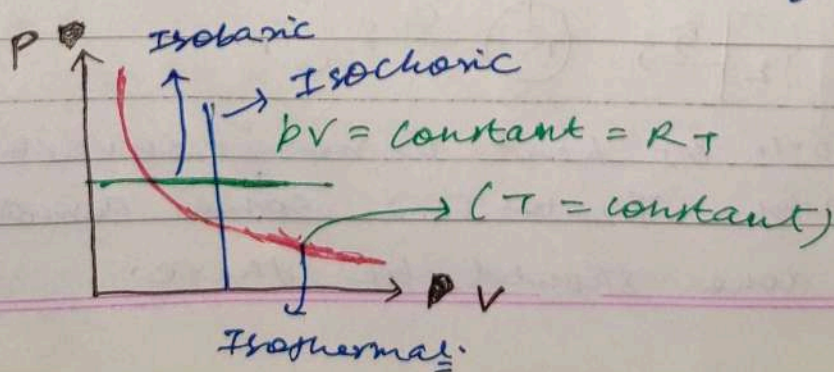 P
Isobaric
Isochoric
pV = constant = RT
(T = constant)
V
Isothermal.